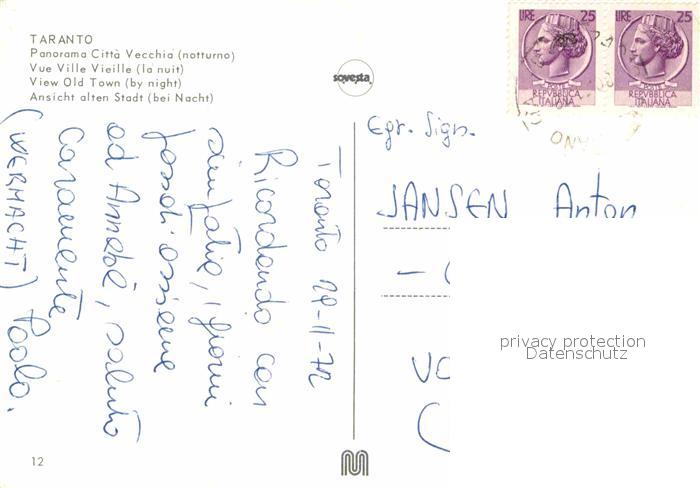 TARANTO
Panorama Città Vecchia (notturno)
Vue Ville Vieille (la nuit)
View Old Town (by night)
Ansicht alten Stadt (bei Nacht)
sovesta
LIRE 25
POSTE
REPVBBLICA
ITALIANA
LIRE 25
POSTE
REPVBBLICA
ITALIANA
Taranto 29-11-72
Ricordando con
simpatia, i giorni
passati assieme
ad Annebè, saluto
caramente
(WERMACHT) Paolo.
Egr. Sign.
JANSEN Anton
privacy protection
Datenschutz
12